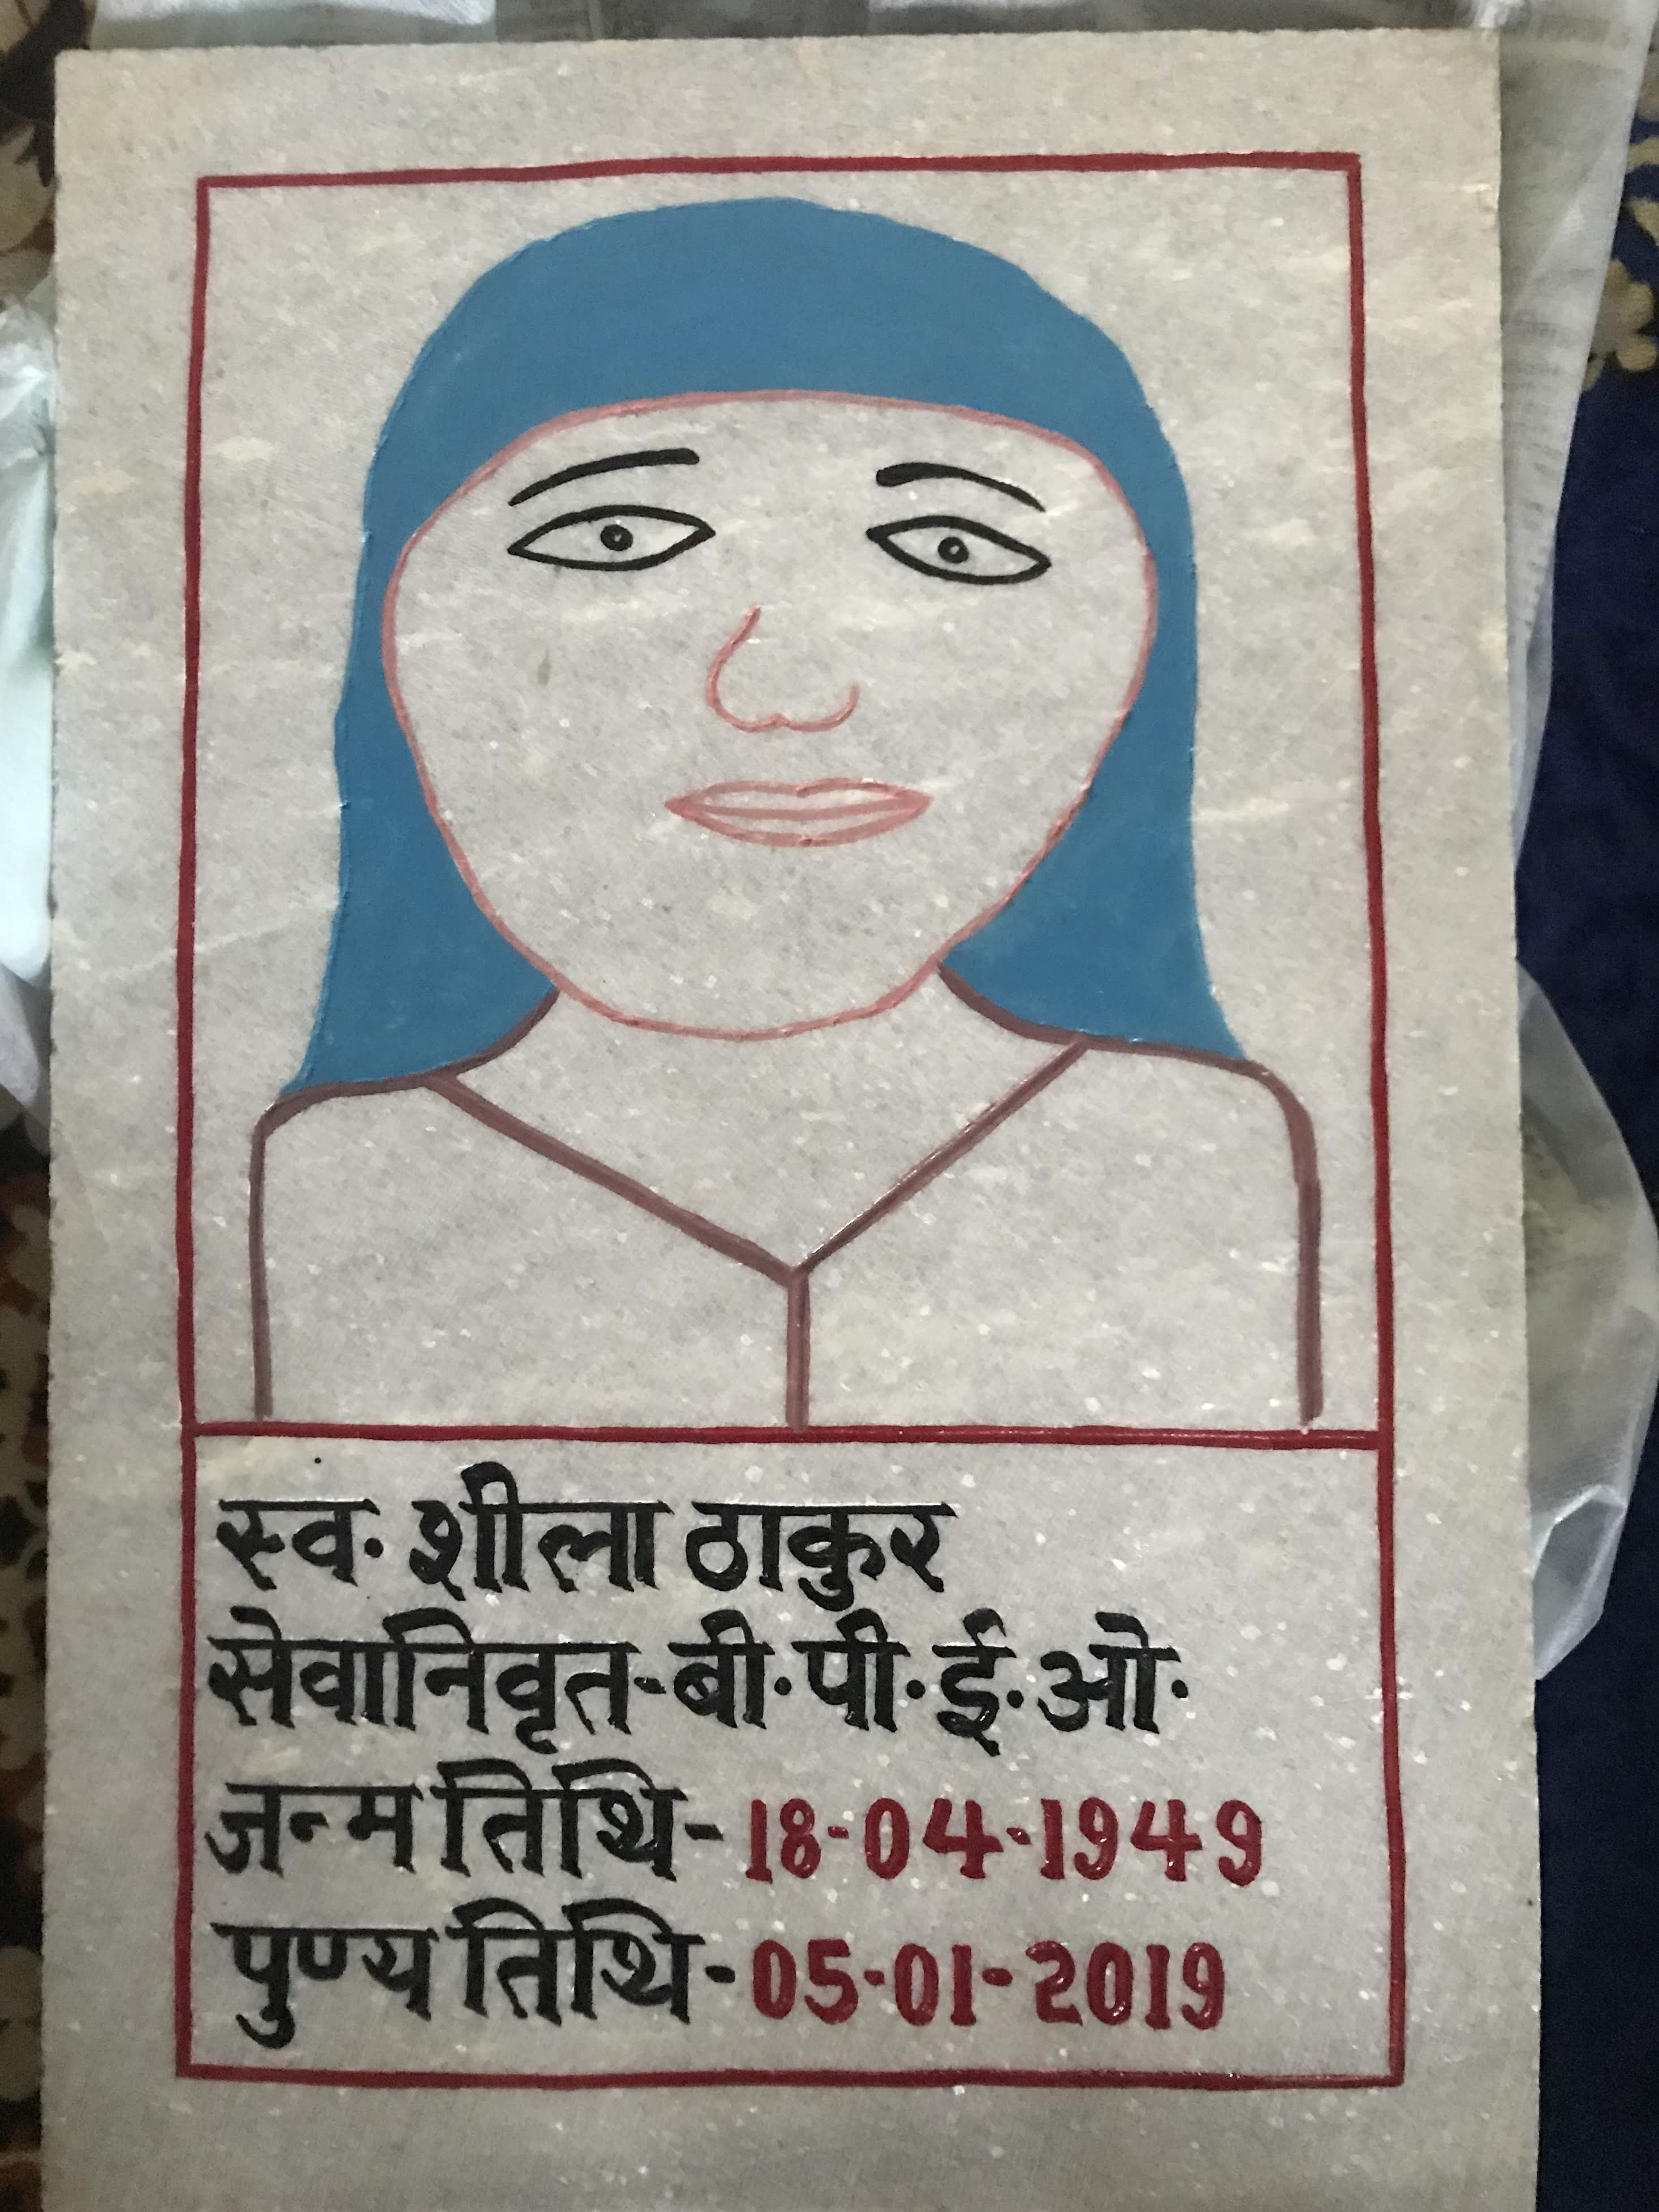 स्व. शीला ठाकुर
सेवानिवृत-बी.पी.ई.ओ.
जन्म तिथि-18-04-1949
पुण्य तिथि-05-01-2019